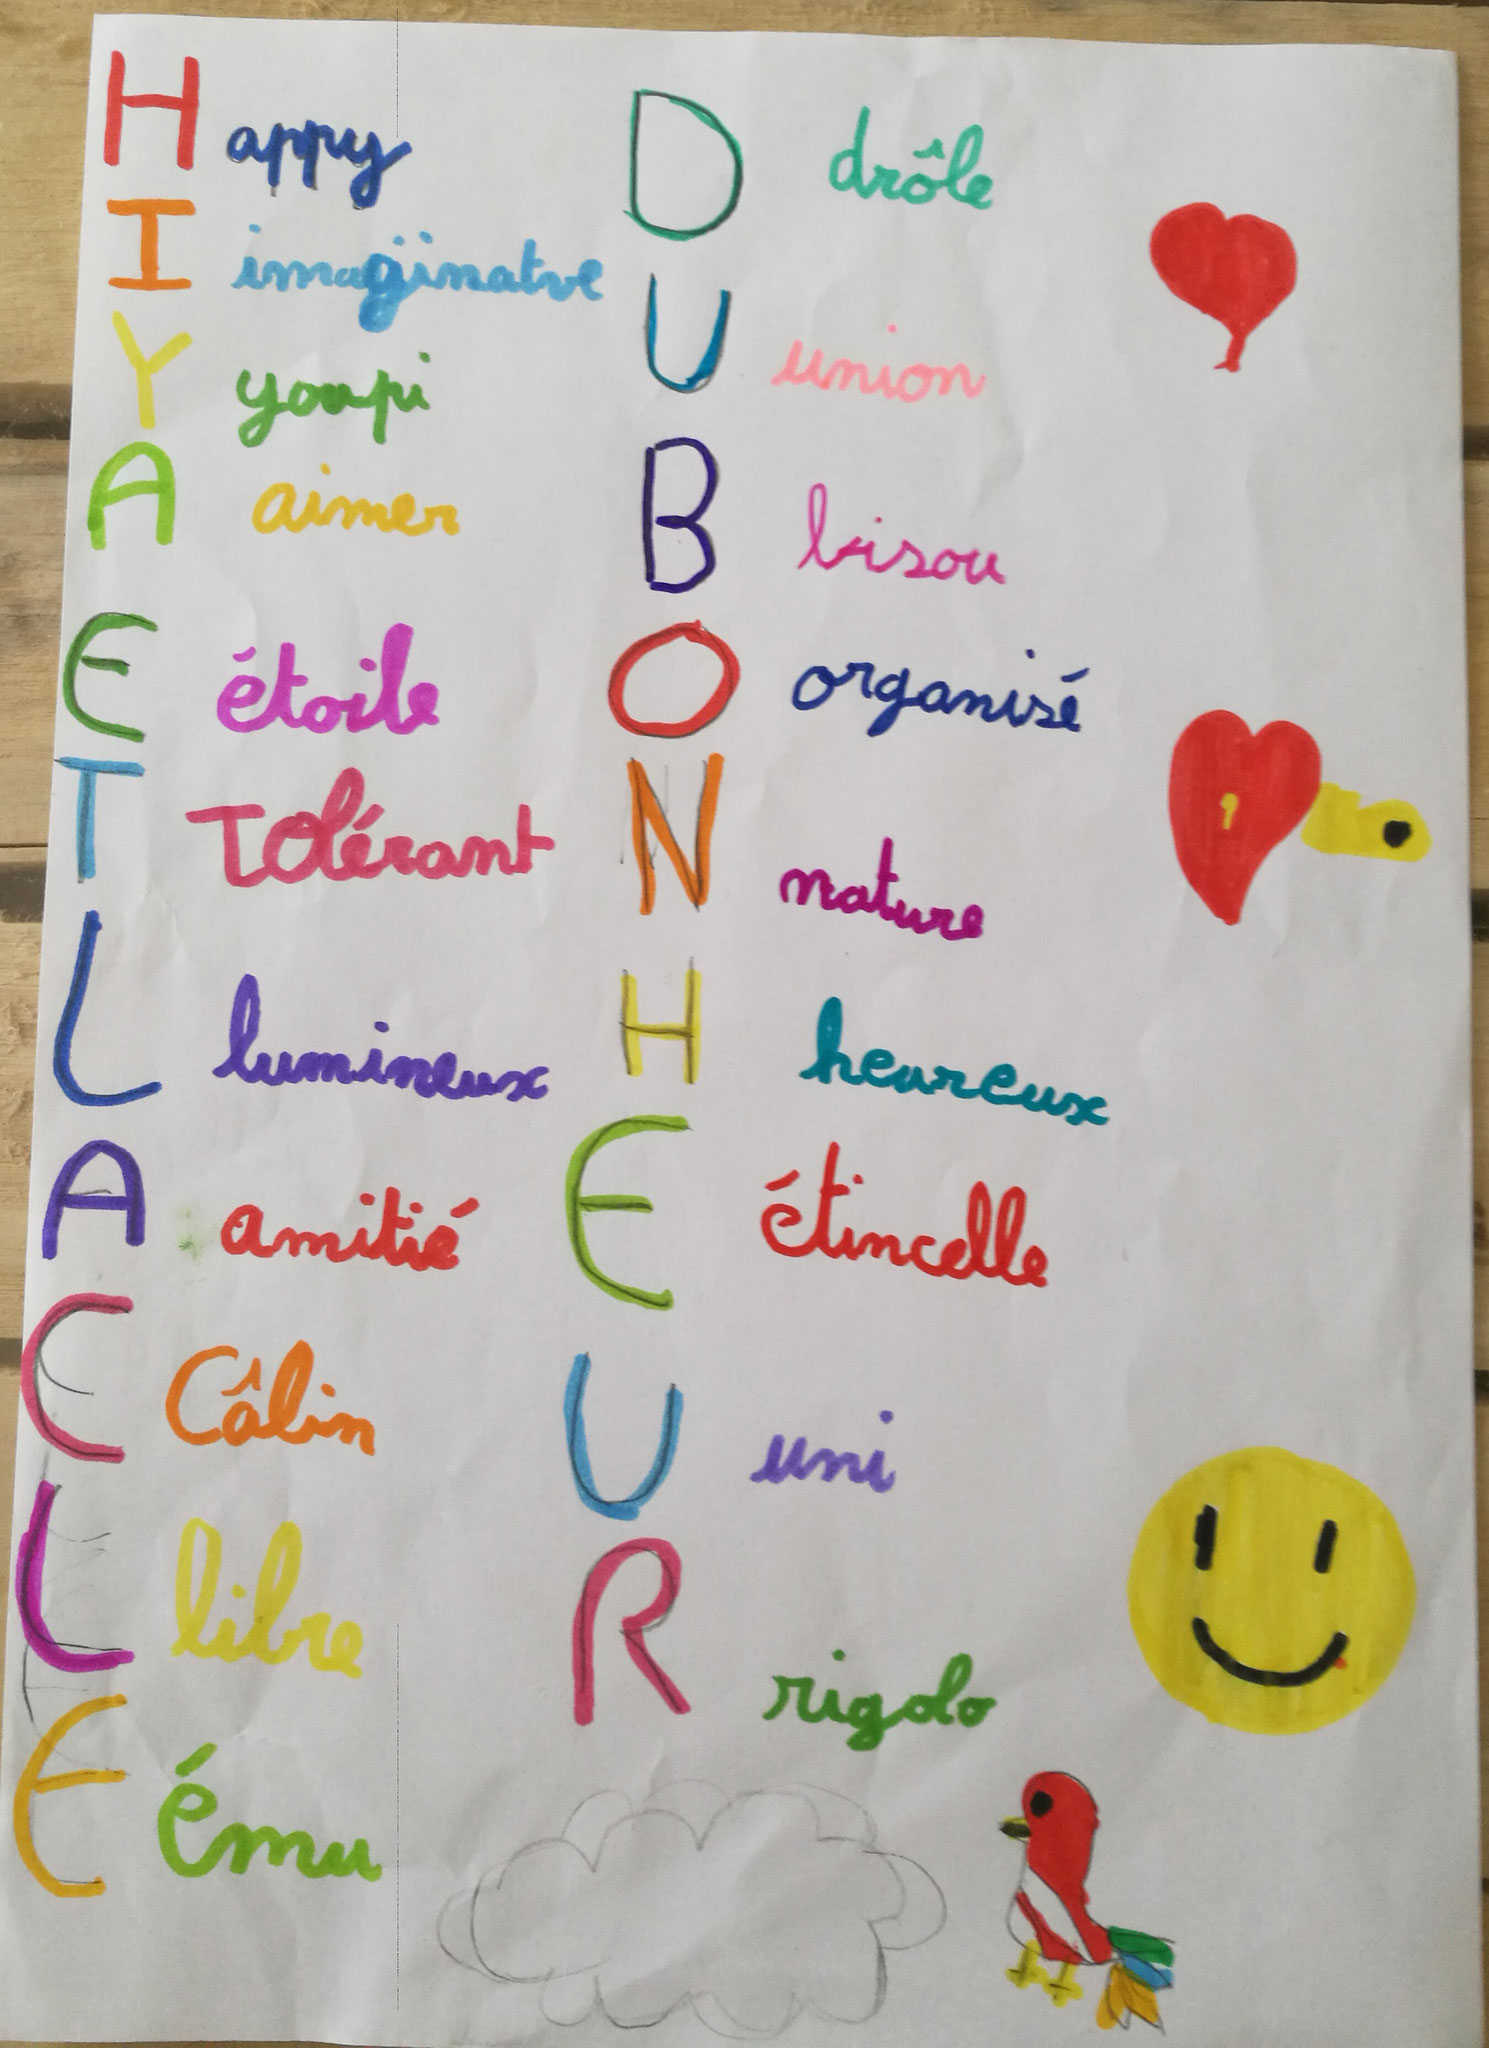 H appy
I imaginatve
Y youpi
A aimer
E étoile
T Tolérant
L lumineux
A amitié
C Câlin
L libre
E ému
D drôle
U union
B bisou
O organisé
N nature
H heureux
E étincelle
U uni
R rigolo